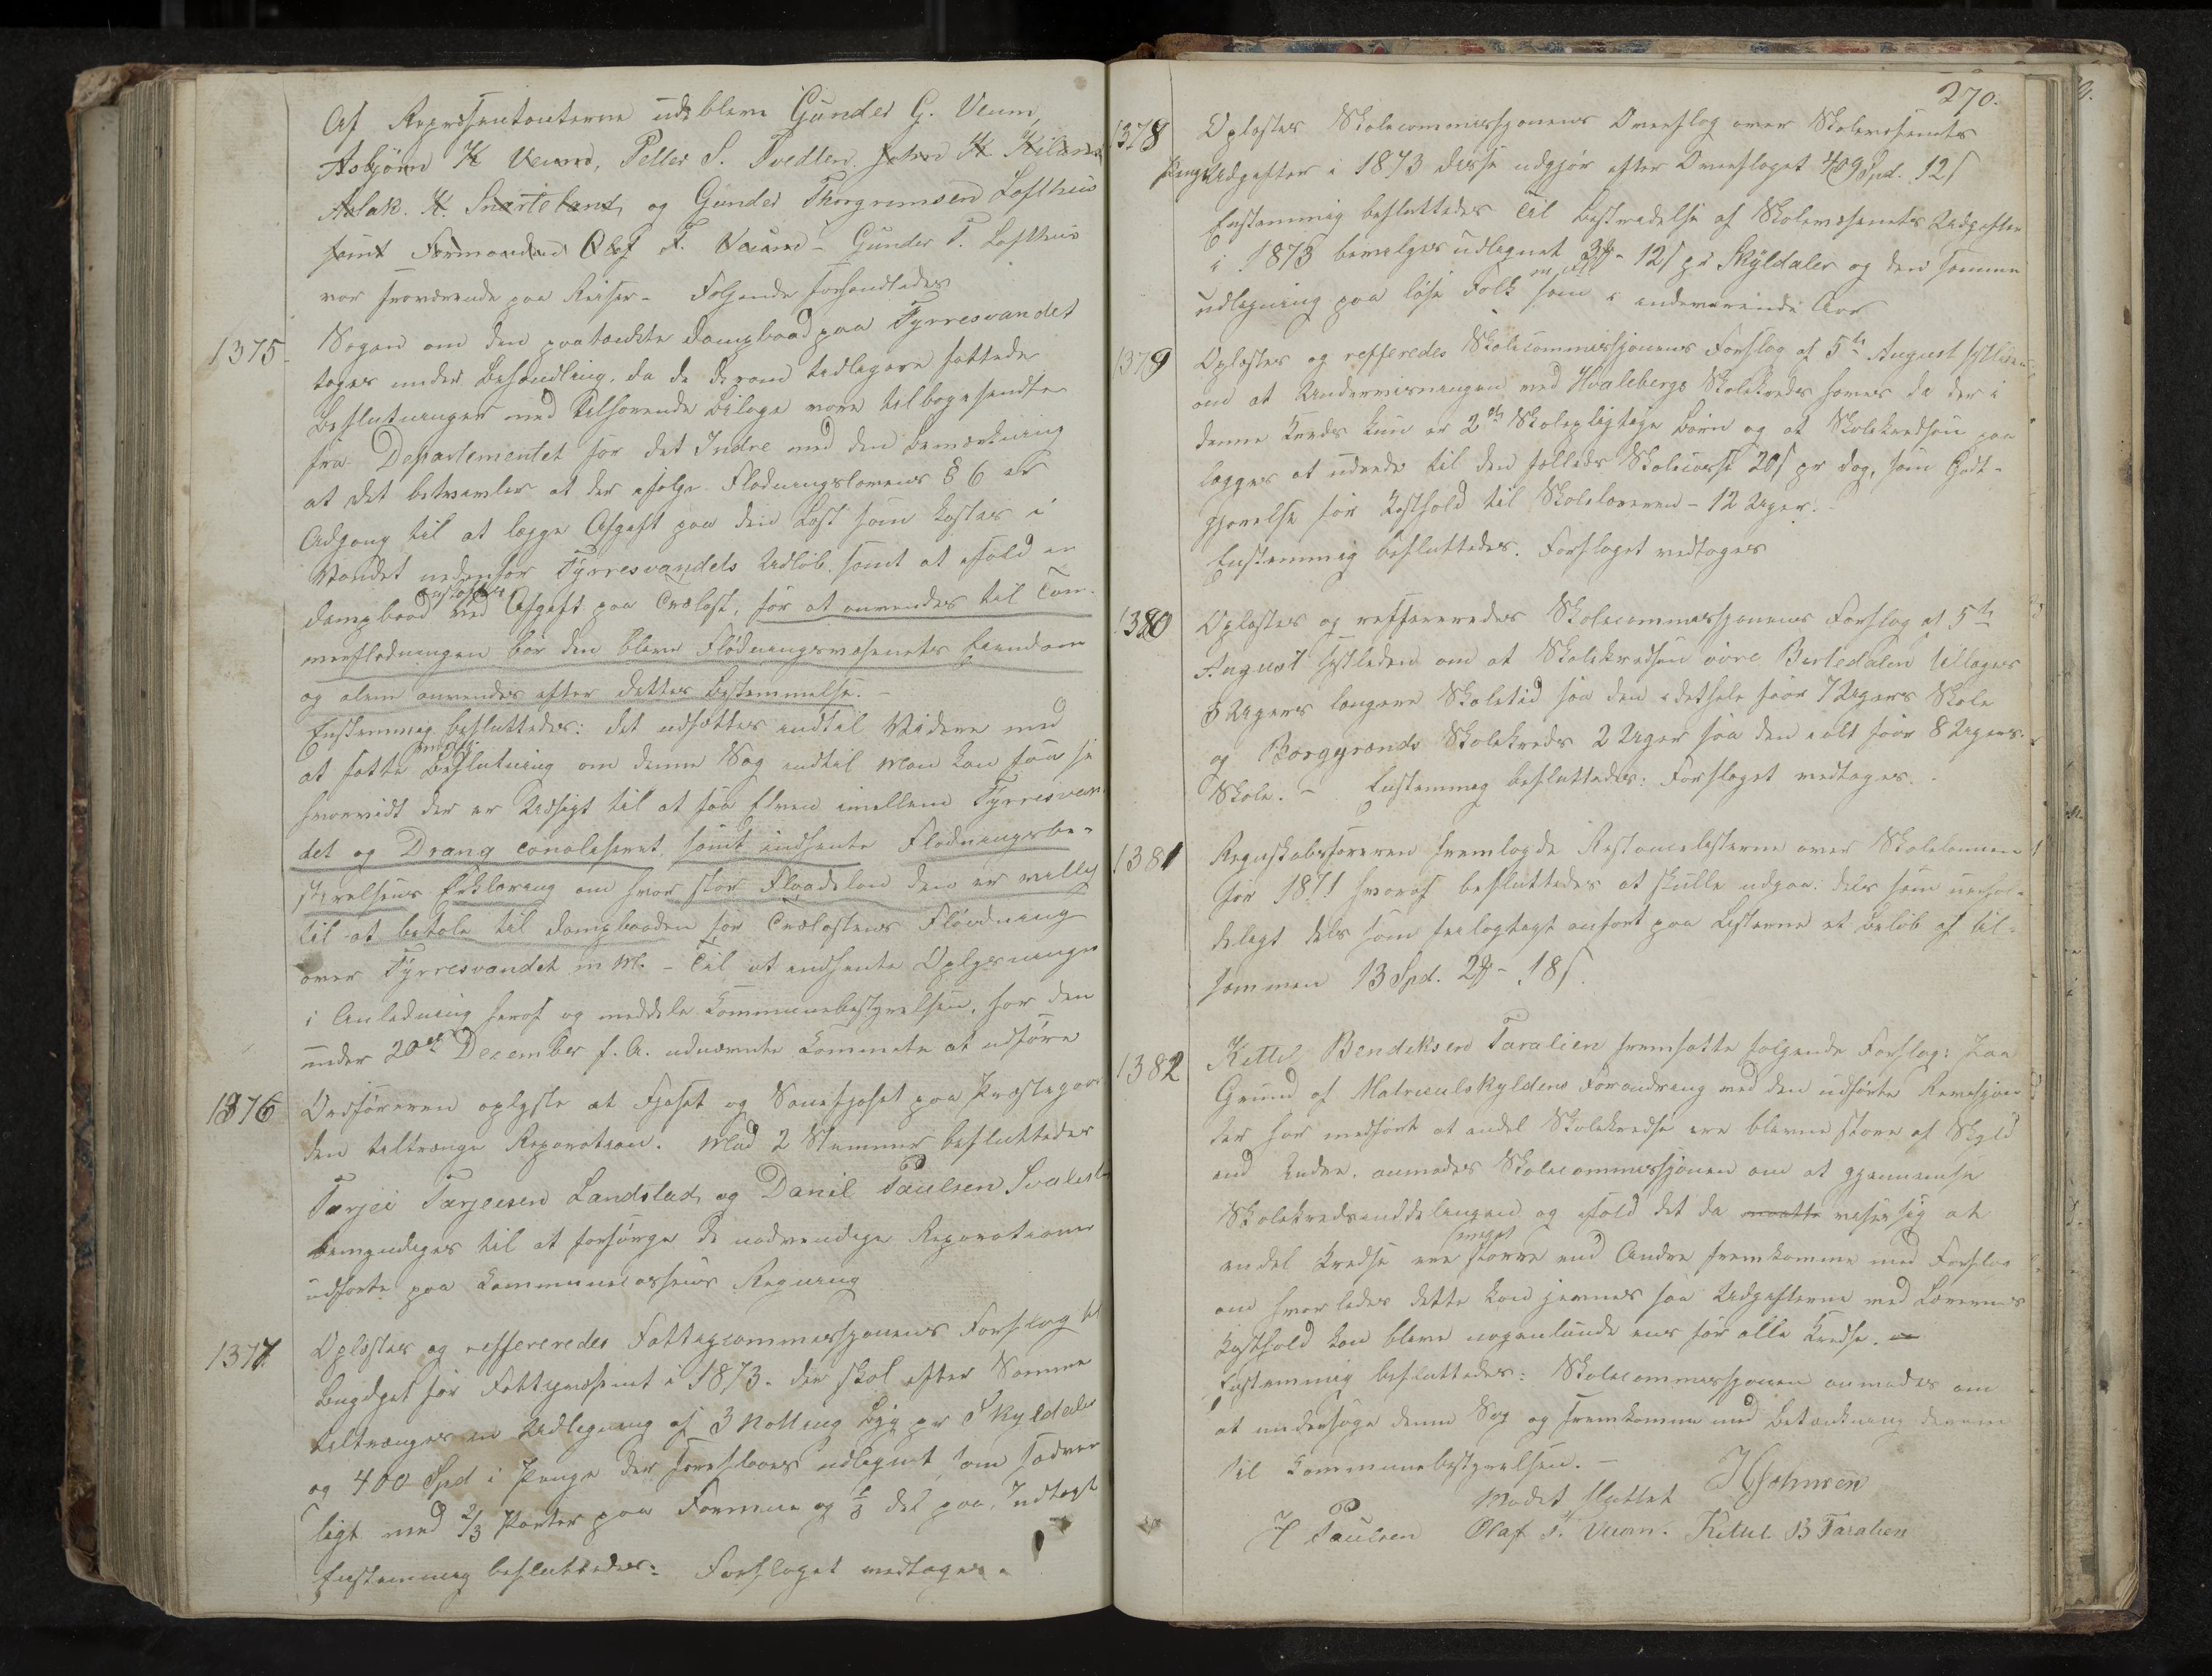 Af Repræsentanterne udebleve Gunder G. Veum,
Asbjörn K Veum, Petter S. Tvedten, John K Kiland
Aslak. K. Snarteland, og Gunder Thorgrimsen Lofthus
samt Formanden Olaf T. Veum - Gunder T. Lofthus
var fraværende paa Reiser - Følgende forhandledes
1375 - Sagen om den paatænkte Dampbaad paa Fyrresvandet
toges under Behandling, da de derom tidligere fattede
Beslutninger med tilhørende Bilage vare tilbagesendte
fra Departementet for det Indre med den Bemærkning
at det betvivler at der ifølge Flødningslovens § 6 er
Adgang til at lægge Afgift paa den Last som kastes i
Vandet nedenfor Fyrresvandets Udløb, samt at ifald en
Dampbaad anskaffes ved Afgift paa Trælast, for at anvendes til Tøm-
merflødningen bør den blive Flødningsvæsenets Eiendom
og alene anvendes efter dettes Bestemmelse. -
Enstemmig besluttedes: Det udsættes indtil Videre med
at fatte Beslutning om denne Sag indtil man kan faa se
hvorvidt der er Udsigt til at faa Elven imellem Fyrresvan-
det og Drang canaliseret samt indhente Flødningsbe-
styrelsens Erklæring om hvor stor Flaadeløn den er villig
til at betale til Dampbaaden for Trælastens Flødning
over Fyrresvandet m M. - Til at indhente Oplysninger
i Anledning heraf og meddele Kommunebestyrelsen, har den
under 20de December f. A. udnævnte Kommite at udføre
1376 Ordføreren oplyste at Fjøset og Sauefjøset paa Præstegaar-
den tiltrænger Reparation. Med 2 Stemmer besluttedes
Tarjei Tarjeisen Landstad, og Danil Paulsen Svalest
bemyndiges til at besørge de nødvendige Reparationer
udførte paa Kommunecassens Regning
1377 Oplæstes og reffereredes Fattigcommissjonens Forslag til
Budget for Fattigvæsenet i 1873. Der skal efter Samme
tiltrænges en Udligning af 3 Notting Byg pr Skyldaler
og 400 Spd i Penge der foreslaaes udlignet som sædvan
ligt med 2/3 Parter paa Formue og 1/3 del paa Indtægt
Enstemmig besluttedes: Forslaget vedtages.
270.
1378 Oplæstes Skolecommissjonens Overslag over Skolevæsenets
Penge Udgifter i 1873 disse udgjør efter Overslaget 409 Spd. 12 s
Enstemmig besluttedes til Bestridelse af Skolevæsenets Udgifter
i 1873 bevilges udlignet 12 s pr Skyldaler og den samme
udligning paa løse Folk som i indeværende Aar
1379 Oplæstes og refferedes Skolecommissjonens Forslag af 5te August sistleden
om at Undervisningen ved Hvalebergs Skolekreds hæves da der i
denne Kreds kun er 2de Skolepligtige Børn og at Skolekredsen paa
lægges at udrede til den fælleds Skolecasse 20 s pr Dag, som Godt-
gjørelse for Kosthold til Skolelæreren - 12 Uger.
Enstemmig besluttedes. Forslaget vedtages
1380 Oplæstes og reffereredes Skolecommissjonens Forslag af 5te
August sistleden om at Skolekredsen øvre Birtedalen tillægges
3 Ugers længere Skoletid saa den i det hele faar 7 Ugers Skole
og Borggrends Skolekreds 2 Uger saa den i alt faar 8 Ugers
Skole. - Enstemmig besluttedes: Forslaget vedtages.
1381 Regnskabsføreren fremlagde Restancelisterne over Skolelønnen
for 1871 hvoraf besluttedes at skulle udgaa: dels som uerhol-
deligt dels som feilagtigt anført paa Listerne et Beløb af til-
sammen 13 Spd. 2 - 18 s.
1382 Kittil Bendiksen Taralien fremsatte følgende Forslag: Paa
Grund af Matriculskyldens Forandring ved den udførte Revisjon
der har medført at endel Skolekredse ere blevne større af Skyld
end Andre, anmodes Skolecommissjonen om at gjennemse
Skolekredsinddelingen og ifald det da maatte viser sig at
endel Kredse ere større end Andre fremkomme med Forslag
om hvorledes dette kan jævnes saa Udgifterne med Lærernes
Kosthold kan blive nogenlunde ens for alle Kredse.
Enstemmig besluttedes: Skolecommissjonen anmodes om
at undersøge denne Sag og fremkomme med Betænkning derom
til Kommunebestyrelsen. -
Mødet sluttet HJohnsen
Paulsen Olaf T. Veum. Kittil B Taralien